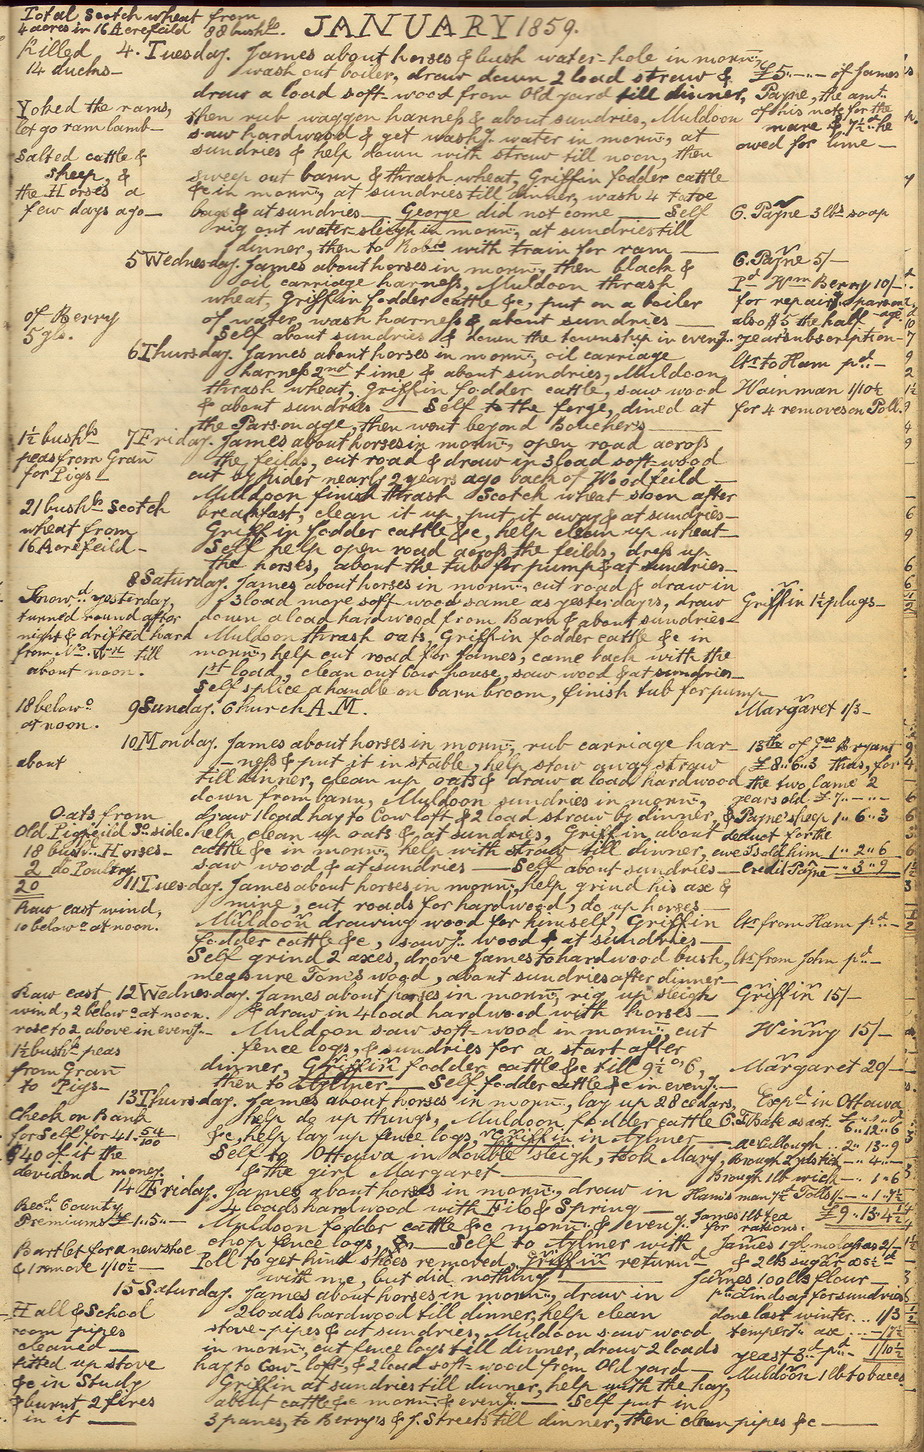 Total Scotch wheat from
4 acres in 16 Acrefeild 88 bushls.
JANUARY 1859.
Killed
14 ducks—
4. Tuesday. James about horses & bush water-hole in morng,
wash out boiler, draw down 2 load straw &
draw a load soft-wood from Old yard till dinner,
then rub waggon harness & about sundries, Muldoon
saw hardwood & get washg. water in morng, at
sundries & help down with straw till noon, then
sweep out barn & thrash wheat, Griffin fodder cattle
&c in morng, at sundries till dinner, wash 4 tatoe
bags & at sundries— George did not come — Self
rig out water-sleigh in morng, at sundries till
dinner, then to Robns with train for ram —
Yoked the rams,
let go ram lamb—
Salted cattle &
sheep, &
the Horses a
few days ago—
£5.. -.. - of James
Payne, the amt.
of his note for the
mare & 7½d he
owed for lime —
C. Payne 3 lbs soap
5 Wednesday. James about horses in morng, then black &
oil carriage harness, Muldoon thrash
wheat, Griffin fodder cattle &c, put on a boiler
of water, wash harness & about sundries —
Self about sundries & down the township in eveng.
of Berry
5 gls.
C. Payne 5/-
Pd Wm Berry 10/-
for repairg. parson-
also $5 the half -age
years subscription-
6 Thursday. James about horses in morng, oil carriage
harness 2nd time & about sundries, Muldoon
thrash wheat, Griffin fodder cattle, saw wood
& about sundries — Self to the forge, dined at
the Parsonage, then went beyond Bouchers —
ltr to Ham pd. —
Wainman 1/10½
for 4 removes on Poll
7 Friday. James about horses in morng, open road across
the feilds, cut road & draw in 3 load soft-wood
cut by Rider nearly 2 years ago back of Woodfeild —
Muldoon finish thrash Scotch wheat soon after
breakfast, clean it up, put it away & at sundries—
Griffin fodder cattle &c, help clean up wheat—
Self help open road across the feilds, dress up
the horses, about the tub for pump & at sundries—
1½ bushls
peas from Gran
for Pigs—
21 bushls Scotch
wheat from
16 Acrefeild —
8 Saturday. James about horses in morng, cut road & draw in
3 load more soft-wood same as yesterdays, draw
down a load hardwood from Barn & about sundries—
Muldoon thrash oats, Griffin fodder cattle &c in
morng, help cut road for James, came back with the
1st load, clean out Cow house, saw wood & at sundries—
Self splice a handle on barn broom, finish tub for pump—
Snowd yesterday,
turned round after
night & drifted hard
from No. Wst till
about noon.
Griffin 1½ plugs—
18 belowo
at noon.
9 Sunday. Church A.M.
Margaret 1/3—
about
10 Monday. James about horses in morng, rub carriage har-
ness & put it in stable, help stow away straw
till dinner, clean up oats & draw a load hardwood
down from barn, Muldoon sundries in morng,
draw 1 load hay to Cow loft & 2 load straw by dinner, &
help clean up oats & at sundries, Griffin about
cattle &c in morng, help with straw till dinner,
saw wood & at sundries — Self about sundries—
Oats from
Old Pigfeild So. side.
18 bush. Horses—
2 do Poultry.
20
13th of Jno Bryant
£8..6..3 thus, for
the two lame 2
years old £7.. -.. -
Payne's sheep 1..6..3
deduct for the
ewe I sold him 1..2..6
Credit Payne —..3..9
11 Tuesday. James about horses in morng, help grind his axe &
mine, cut roads for hardwood, do up horses —
Muldoon drawing wood for himself, Griffin
fodder cattle &c, sawg. wood & at sundries—
Self grind 2 axes, drove James to hardwood bush,
measure Tom's wood, about sundries after dinner—
Raw east wind,
10 belowo at noon.
ltr from Ham pd —
ltr from John pd —
12 Wednesday. James about horses in morng, rig up sleigh
& draw in 4 load hardwood with horses —
Muldoon saw soft-wood in morng, cut
fence logs, & sundries for a start after
dinner, Griffin fodder cattle &c till 9½ o'c,
then to Aylmer — Self fodder cattle &c in eveng.—
Raw east
wind, 2 belowo at noon.
rose to 2 above in eveng.—
1½ bushls peas
from Gran
to Pigs—
Griffin 15/-
Winny 15/-
Margaret 20/-
13 Thursday. James about horses in morng, lay up 28 cedars,
help do up things, Muldoon fodder cattle
&c, help lay up fence logs, Griffin in Aylmer —
Self to Ottawa in double sleigh, took Mary,
& the girl Margaret
Check on Bank
for Self for 41.54/100
$40 of it the
devidend money.
Expd in Ottawa
Brough 2 yds tick —..4..-
Brough 1 lb wick —..1..6
£9..13..4½
14 Friday. James about horses in morng, draw in
4 loads hardwood with Filo & Spring —
Muldoon fodder cattle &c morng & eveng,
chop fence logs, &c — Self to Aylmer with
Poll to get hind shoes removed, Griffin returnd
with me, but did nothing —
Recd. County
Premiums £1..5..-
Bartlet for a new shoe
& 1 remove 1/10½ —
James 1 lb tea
for rations.
James 1 gl. molasses 2/
& 2 lbs sugar
James 100 lbs flour —
15 Saturday. James about horses in morng, draw in
2 loads hardwood till dinner, help clean
stove-pipes & at sundries, Muldoon saw wood
in morng, cut fence logs till dinner, draw 2 loads
hay to Cow-loft, & 2 load soft-wood from Old yard —
Griffin at sundries till dinner, help with the hay,
about cattle &c morng & eveng. — Self put in
3 panes, to Berry's & J. Streets till dinner, then clean pipes &c —
Hall & School
room pipes
cleaned —
fitted up stove
&c in Study
& burnt 2 fires
in it —
pd Lindsay for sundries
done last winter... 1/3
temperg. axe ... -/7½
1/10½
yeast 3d pd —
Muldoon 1 lb tobacco